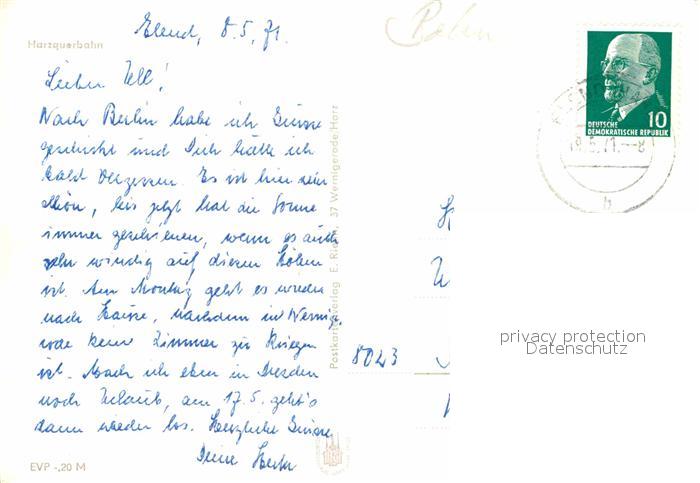 Harzquerbahn
Elend, 8.5.71.
Lieber Ull!
Nach Berlin habe ich Grüsse
geschickt und Dich hätte ich
bald vergessen. Es ist hier sehr
schön, bis jetzt hat die Sonne
immer geschienen, wenn es auch
sehr windig auf diesen Höhen
ist. Am Montag geht es wieder
nach Hause, nachdem in Wernig.
rode kein Zimmer zu kriegen
ist. Mach ich eben in Dresden
noch Urlaub, am 17.5. geht's
dann wieder los. Herzliche Grüsse
Deine
EVP -,20 M
Postkartenverlag E. 37 Wernigerode/Harz
10
DEUTSCHE
DEMOKRATISCHE REPUBLIK
5.71.-8
b
8023
privacy protection
Datenschutz